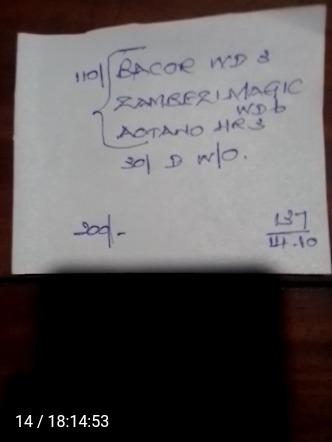 110/ BACOR WD 3
ZAMBEZI MAGIC
WD 6
AOTANO HR 3
30/ D W/O.
200/-
137
14.10
14 / 18:14:53